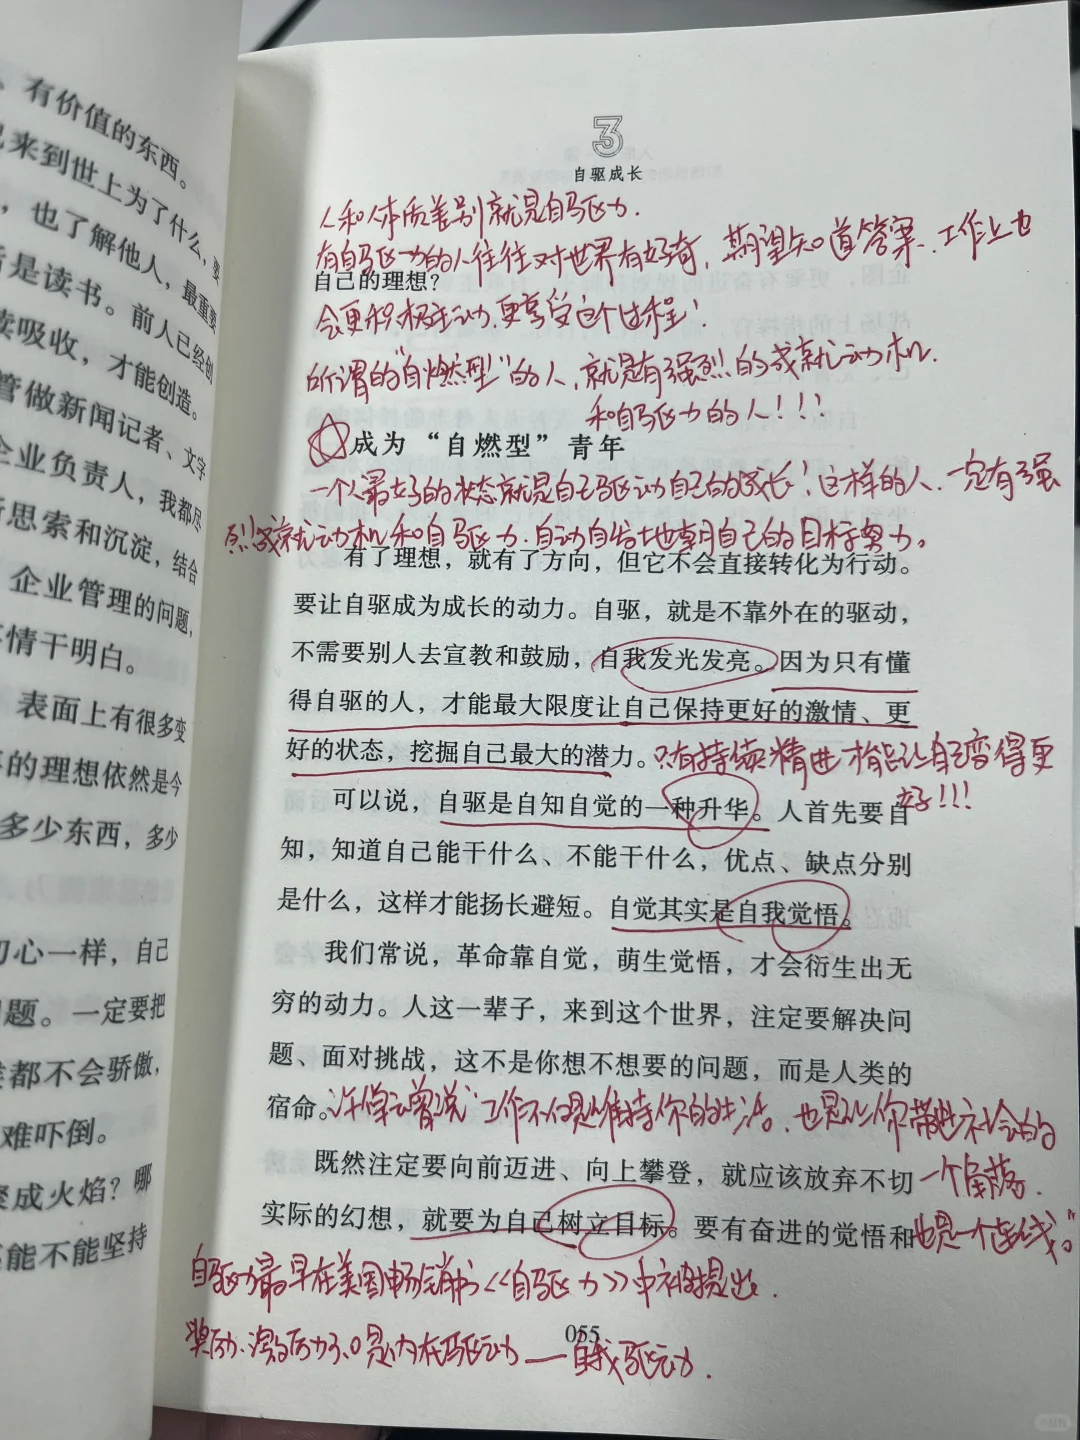 、有价值的东西。
来到世上为了什么，要
，也了解他人，最重要
是读书。前人已经创
读吸收，才能创造。
管做新闻记者、文字
企业负责人，我都尽
断思索和沉淀，结合
企业管理的问题，
事情干明白。
表面上有很多变
的理想依然是今
多少东西，多少
初心一样，自己
问题。一定要把
都不会骄傲，
难吓倒。
聚成火焰？哪
能不能坚持
3
自驱成长
人和人本质差别就是自驱力.
有自驱力的人往往对世界有好奇，期望知道答案、工作上也
自己的理想？
会更积极主动，更享受这个过程！
所谓的“自燃型”的人，就是有强烈的成就动机.
和自驱力的人！！！
成为“自燃型”青年
一个人最好的状态就是自己驱动自己的成长！这样的人、一定有强
烈成就动机和自驱力.自动自发地朝自己的目标努力。
有了理想，就有了方向，但它不会直接转化为行动。
要让自驱成为成长的动力。自驱，就是不靠外在的驱动，
不需要别人去宣教和鼓励，自我发光发亮。因为只有懂
得自驱的人，才能最大限度让自己保持更好的激情、更
好的状态，挖掘自己最大的潜力。只有持续精进才能让自己变得更
好！！！
可以说，自驱是自知自觉的一种升华。人首先要自
知，知道自己能干什么、不能干什么，优点、缺点分别
是什么，这样才能扬长避短。自觉其实是自我觉悟。
我们常说，革命靠自觉，萌生觉悟，才会衍生出无
穷的动力。人这一辈子，来到这个世界，注定要解决问
题、面对挑战，这不是你想不想要的问题，而是人类的
宿命。许倬云曾说“工作不仅是维持你的生活、也是让你带进社会的
既然注定要向前迈进、向上攀登，就应该放弃不切一个角落.
实际的幻想，就要为自己树立目标。要有奋进的觉悟和也是一个连线。”
自驱力最早在美国畅销书《自驱力》中被提出.
055
奖励、激励力、是内在驱动——自我驱动.